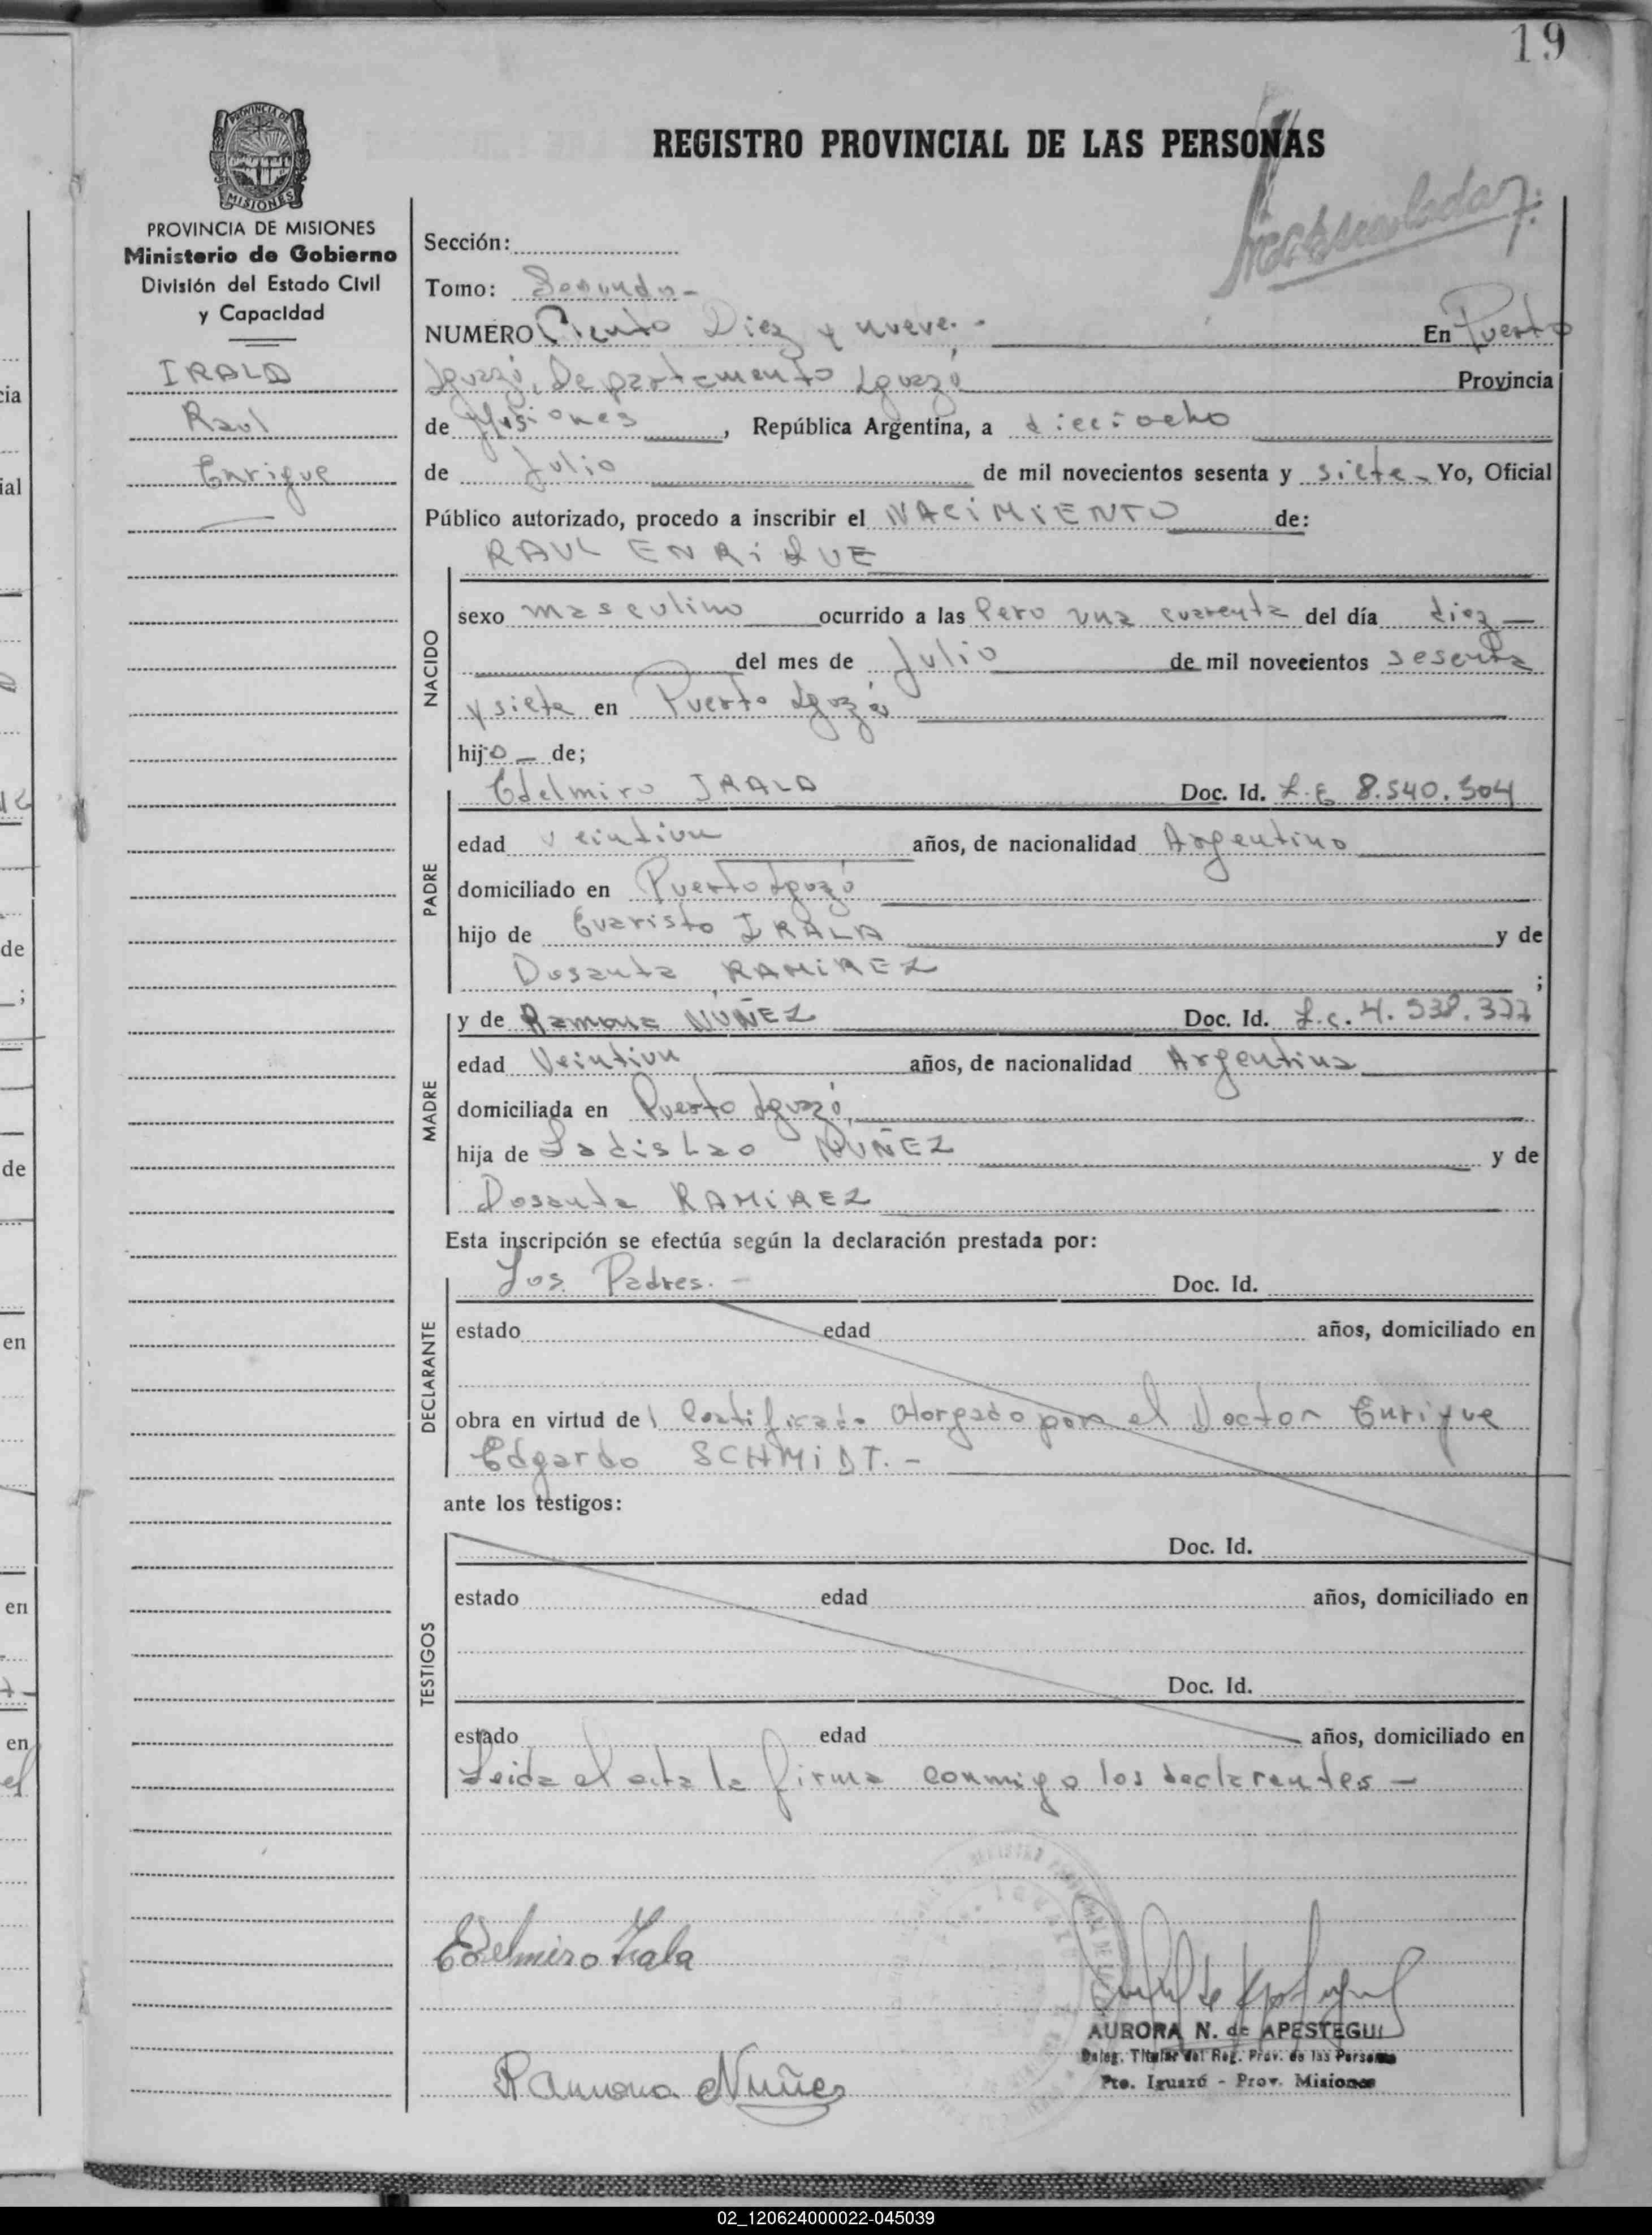 19
REGISTRO PROVINCIAL DE LAS PERSONAS
PROVINCIA DE MISIONES
Ministerio de Gobierno
División del Estado Civil
y Capacidad
IRALA
Raul
Enrique
Sección:
Tomo: Segundo-
NUMERO Ciento Diez y nueve.- En Puerto
Iguazú, Departamento Iguazú Provincia
de Misiones, República Argentina, a dieciocho
de Julio de mil novecientos sesenta y siete- Yo, Oficial
Público autorizado, procedo a inscribir el NACIMIENTO de:
RAUL ENRIQUE
NACIDO
sexo masculino ocurrido a las cero una cuarenta del día diez
del mes de Julio de mil novecientos sesenta
y siete en Puerto Iguazú
hijo de;
PADRE
Edelmiro IRALA Doc. Id. L.E 8.540.504
edad veintiun años, de nacionalidad Argentino
domiciliado en Puerto Iguazú
hijo de Evaristo IRALA y de
Dosanta RAMIREZ ;
MADRE
y de Ramona NUÑEZ Doc. Id. L.C. 4.938.377
edad Veintiun años, de nacionalidad Argentina
domiciliada en Puerto Iguazú
hija de Ladislao NUÑEZ y de
Dosanta RAMIREZ
Esta inscripción se efectúa según la declaración prestada por:
DECLARANTE
Los Padres.- Doc. Id.
estado edad años, domiciliado en
obra en virtud del Certificado otorgado por el Doctor Enrique
Edgardo SCHMIDT.-
ante los testigos:
TESTIGOS
Doc. Id.
estado edad años, domiciliado en
Doc. Id.
estado edad años, domiciliado en
Leida el acta la firma conmigo los declarantes-
Edelmiro Irala
AURORA N. de APESTEGUI
Deleg. Titular del Reg. Prov. de las Personas
Pto. Iguazú - Prov. Misiones
Ramona Nuñes
02_120624000022-045039